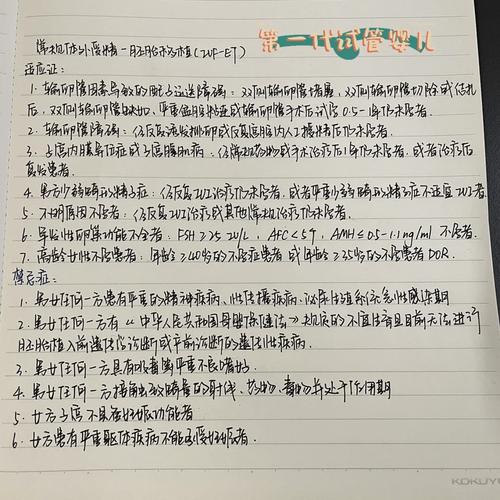 常规体外受精-胚胎移植(IVF-ET)
第一代试管婴儿
适应证:
1. 输卵管因素导致的配子运送障碍: 双侧输卵管堵塞, 双侧输卵管切除或结扎
后, 双侧输卵管缺如, 严重盆腔粘连或输卵管手术后试孕0.5-1年仍未孕者.
2. 排卵障碍: 经反复促发排卵或反复宫腔内人工授精后仍未孕者.
3. 子宫内膜异位症或子宫腺肌病: 经常规药物或手术治疗后1年仍未孕者, 或者治疗后
复发患者.
4. 男方少弱畸形精子症: 经反复IUI治疗仍未孕者, 或者严重少弱畸形精子症不适宜IUI者.
5. 不明原因不孕者: 经反复IUI治疗或其他常规治疗仍未孕者.
6. 早发性卵巢功能不全者: FSH≥25 IU/L, AFC<5个, AMH≤0.5-1.1ng/ml 不孕者.
7. 高龄女性不孕患者: 年龄≥40岁的不孕症患者或年龄≥35岁的不孕患者DOR.
禁忌症:
1. 男女任何一方患有严重的精神疾病、性传播疾病、泌尿生殖系统急性感染期
2. 男女任何一方有《中华人民共和国母婴保健法》规定的不宜生育且目前无法进行
胚胎植入前遗传学诊断或产前诊断的遗传性疾病.
3. 男女任何一方具有吸毒等严重不良嗜好.
4. 男女任何一方接触致畸量的射线、药物、毒物并处于作用期
5. 女方子宫不具备妊娠功能者
6. 女方患有严重躯体疾病不能承受妊娠者.
KOKUYO